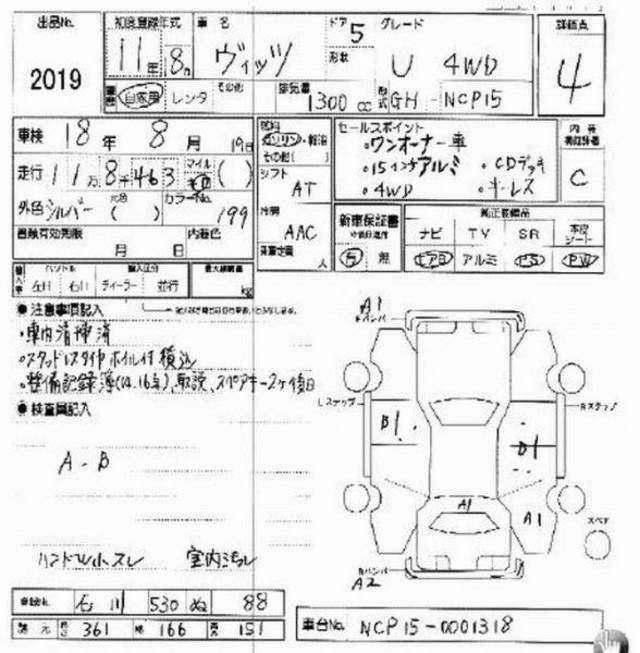 出品No. 2019
初度登録年式 11年 8月
車名 ヴィッツ
ドア 5 形状
グレード U 4WD
評価点 4
自家用 レンタ その他
排気量 1300cc
型式 GH-NCP15
車検 18年 8月 19日
走行 11万8千463 マイル ( )
外色 シルバー 元色 ( ) カラーNo. 199
車検有効期限 月 日 内装色
燃料 ガソリン・軽油 その他( )
シフト AT
冷房 AAC
乗車定員 人
セールスポイント
・ワンオーナー車
・15インチアルミ ・CDデッキ
・4WD ・キーレス
内装 C
新車保証書 有 無
純正装備品
ナビ TV SR 本皮シート
エアB アルミ PS PW
ハンドル 左H 右H
輸入区分 ディーラー 並行
最大積載量 kg
●注意事項記入
・車内清掃済
・スタッドレスタイヤホイル付積込
・整備記録簿(04.16年)、取説、スペアキー2ヶ後日
●検査員記入
A-B
ハンドル小スレ 室内ヨゴレ
A1
Fバンパ
Lステップ
Rステップ
B1
B1
A1
A1
スペア
Rバンパ
A2
登録No. 石川 530 ぬ 88
諸元 長さ 361 幅 166 高さ 151
車台No. NCP15-0001318